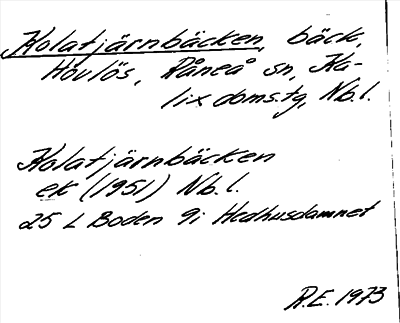 Kolatjärnbäcken, bäck,
Hovlös, Råneå sn, Ka-
lix doms.tg, Nb.l.
Kolatjärnbäcken
ek (1951) Nb.l.
25 L Boden 9i Hedhusdamnet
R.E. 1973